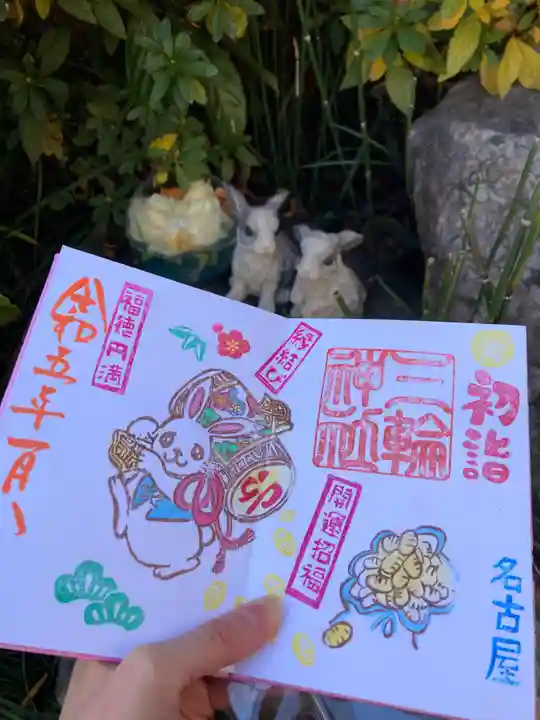 初詣
三輪
神社
縁結び
開運招福
名古屋
卯
福徳円満
令和五年一月